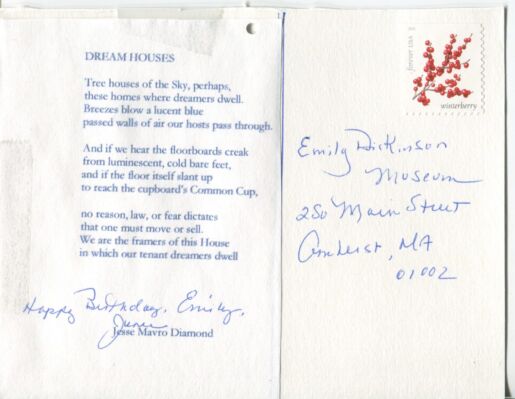 DREAM HOUSES
Tree houses of the Sky, perhaps,
these homes where dreamers dwell.
Breezes blow a lucent blue
passed walls of air our hosts pass through.
And if we hear the floorboards creak
from luminescent, cold bare feet,
and if the floor itself slant up
to reach the cupboard's Common Cup,
no reason, law, or fear dictates
that one must move or sell.
We are the framers of this House
in which our tenant dreamers dwell
Happy Birthday, Emily,
Jesse Mavro Diamond
forever USA
winterberry
Emily Dickinson
Museum
280 Main Street
Amherst, MA
01002